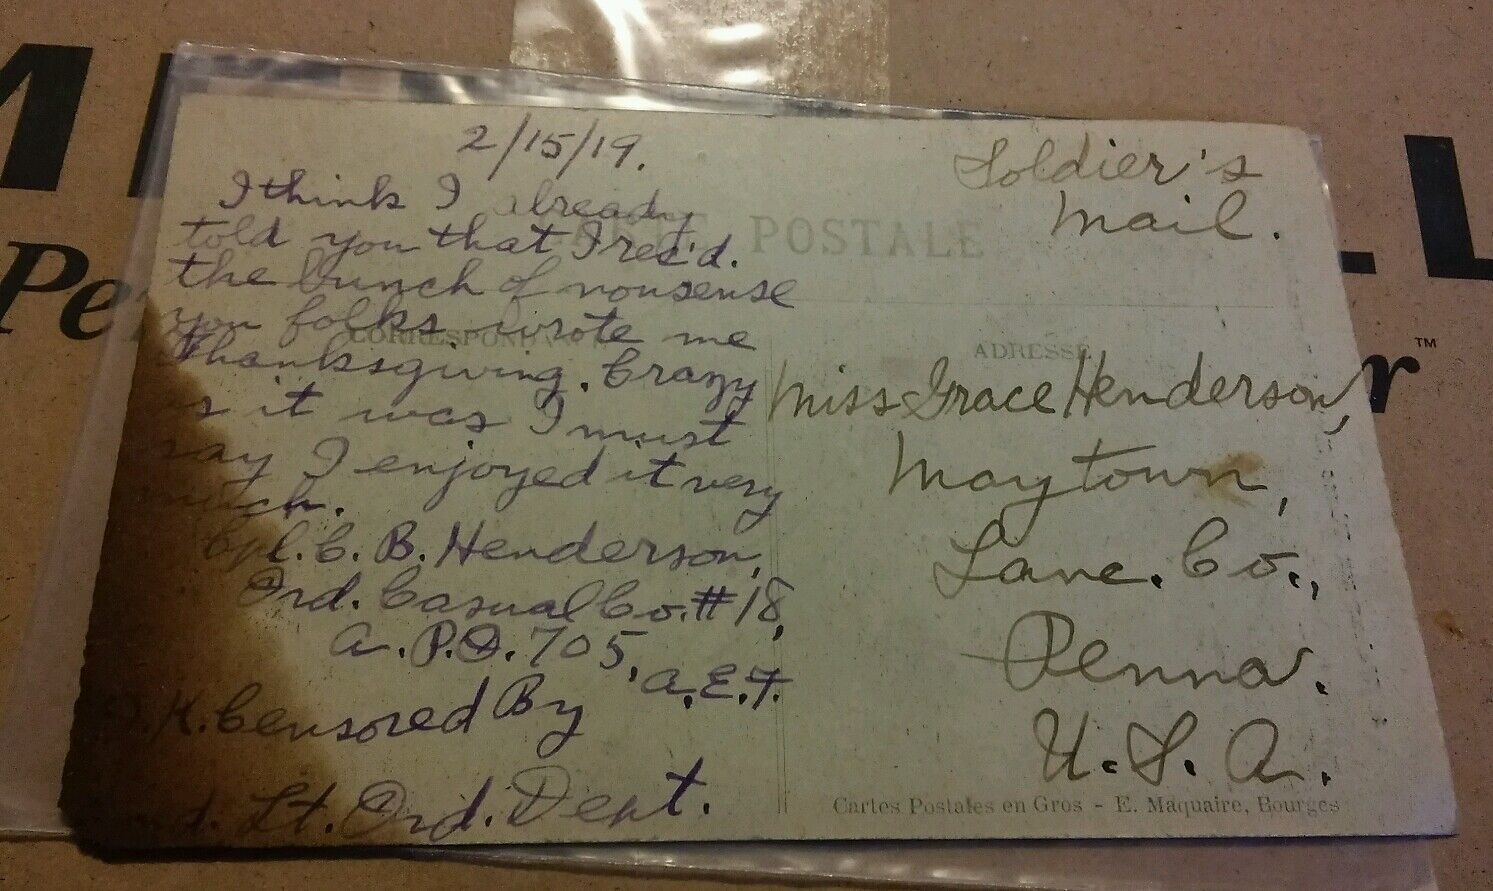 2/15/19.
I think I already
told you that I rec'd.
the bunch of nonsense
you folks wrote me
Thanksgiving. Crazy
as it was I must
say I enjoyed it very
much.
Cpl. C. B. Henderson,
Ord. Casual Co. #18,
A.P.O. 705,
A.E.F.
O.K. Censored By
2nd. Lt. Ord. Dept.
Soldier's
Mail.
CARTE POSTALE
CORRESPONDANCE
ADRESSE
Miss Grace Henderson,
Maytown,
Lanc. Co.,
Penna.
U.S.A.
Cartes Postales en Gros - E. Maquaire, Bourges
Pe
r™